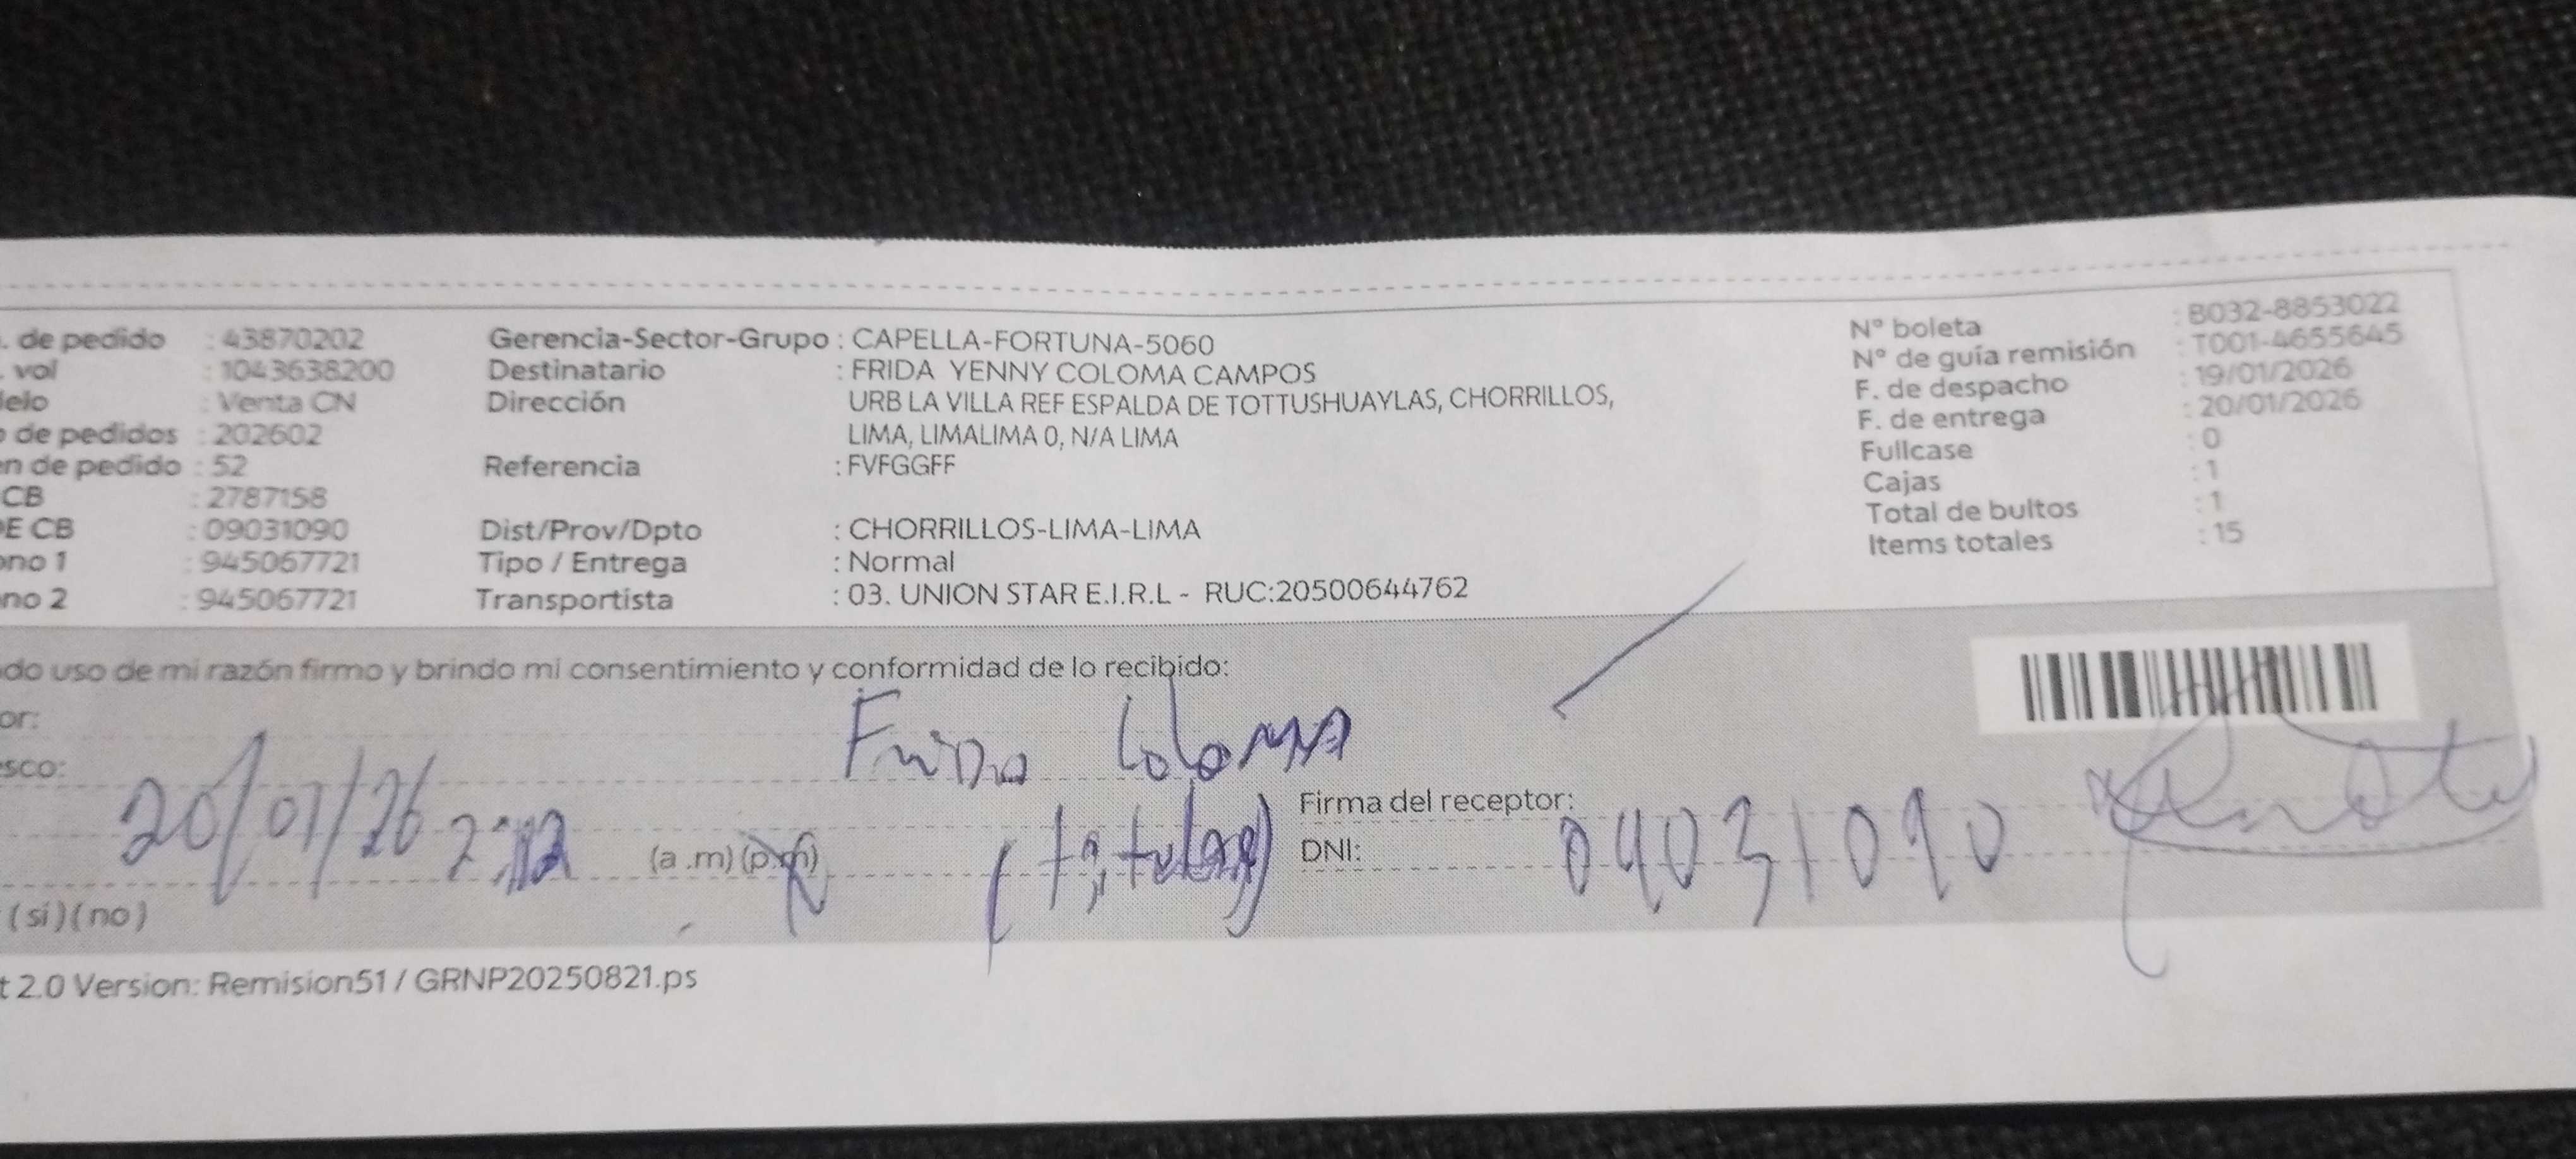 . de pedido : 43870202
. vol : 1043638200
elo : Venta CN
o de pedidos : 202602
en de pedido : 52
CB : 2787158
E CB : 09031090
ono 1 : 945067721
no 2 : 945067721
Gerencia-Sector-Grupo : CAPELLA-FORTUNA-5060
Destinatario : FRIDA YENNY COLOMA CAMPOS
Dirección URB LA VILLA REF ESPALDA DE TOTTUSHUAYLAS, CHORRILLOS,
LIMA, LIMALIMA 0, N/A LIMA
Referencia : FVFGGFF
Dist/Prov/Dpto : CHORRILLOS-LIMA-LIMA
Tipo / Entrega : Normal
Transportista : 03. UNION STAR E.I.R.L - RUC:20500644762
N° boleta : B032-8853022
N° de guía remisión : T001-4655645
F. de despacho : 19/01/2026
F. de entrega : 20/01/2026
Fullcase : 0
Cajas : 1
Total de bultos : 1
Items totales : 15
do uso de mi razón firmo y brindo mi consentimiento y conformidad de lo recibido:
or:
Frida Coloma
sco:
20/01/26 (a .m) (p.m)
(titular)
Firma del receptor:
DNI: 04031090
(si) (no)
t 2.0 Version: Remision51 / GRNP20250821.ps